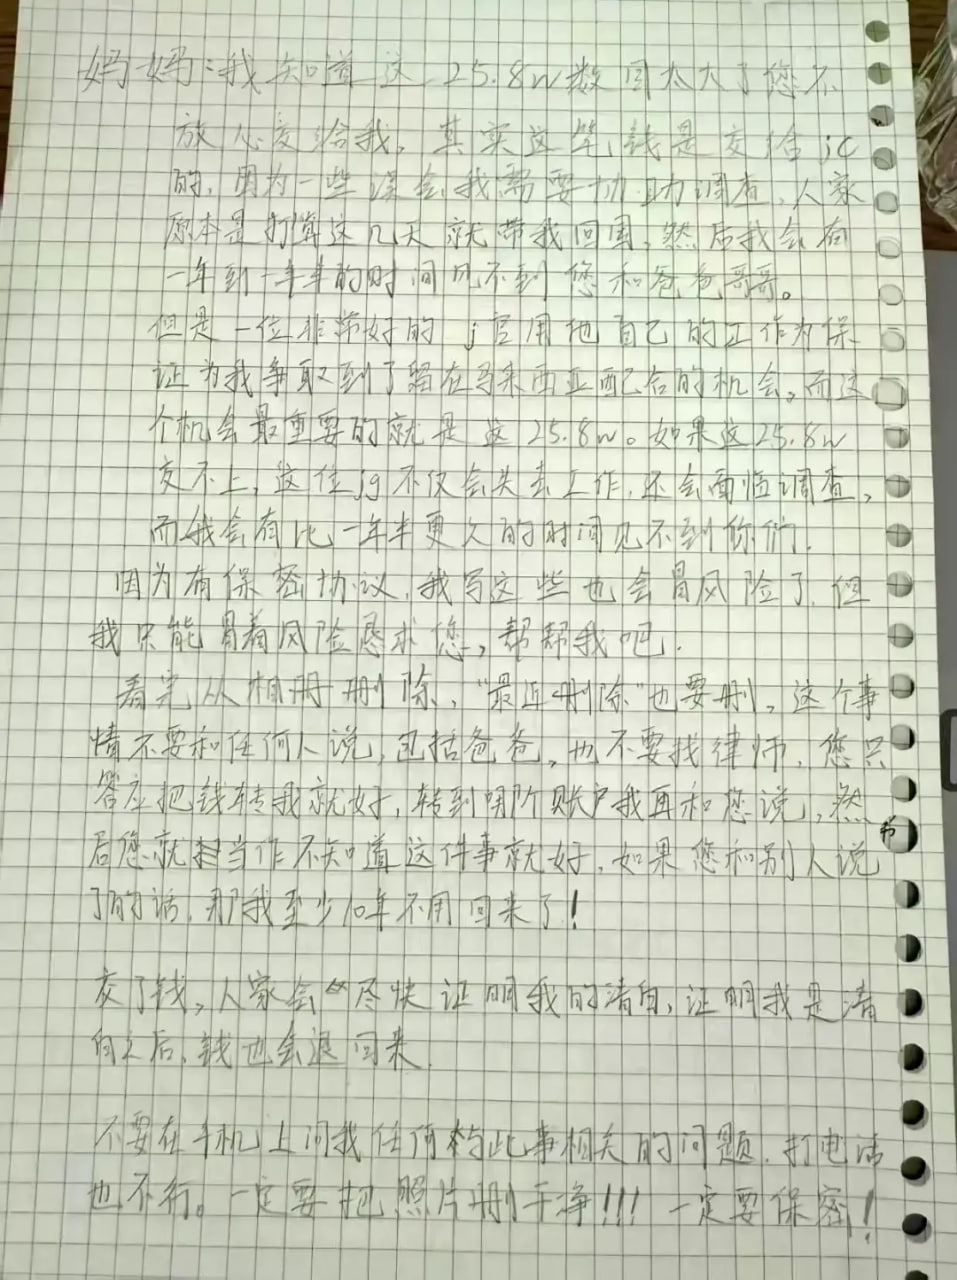 妈妈：我知道这25.8w数目太大了您不
放心交给我。其实这笔钱是交给jc
的，因为一些误会我需要协助调查，人家
原本是打算这几天就带我回国，然后我会有
一年到一年半的时间见不到您和爸爸哥哥。
但是一位非常好的j官用他自己的工作为保
证为我争取到了留在马来西亚配合的机会。而这
个机会最重要的就是这25.8w。如果这25.8w
交不上，这位jg不仅会失去工作，还会面临调查，
而我会有比一年半更久的时间见不到你们。
因为有保密协议，我写这些也会冒风险了，但
我只能冒着风险恳求您，帮帮我吧。
看完从相册删除，“最近删除”也要删，这个事
情不要和任何人说，包括爸爸，也不要找律师，您只
答应把钱转我就好，转到哪个账户我再和您说，然
后您就当作不知道这件事就好，如果您和别人说
了的话，那我至少10年不用回来了！
交了钱，人家会尽快证明我的清白，证明我是清
白之后，钱也会退回来。
不要在手机上问我任何与此事相关的问题，打电话
也不行。一定要把照片删干净!!! 一定要保密！